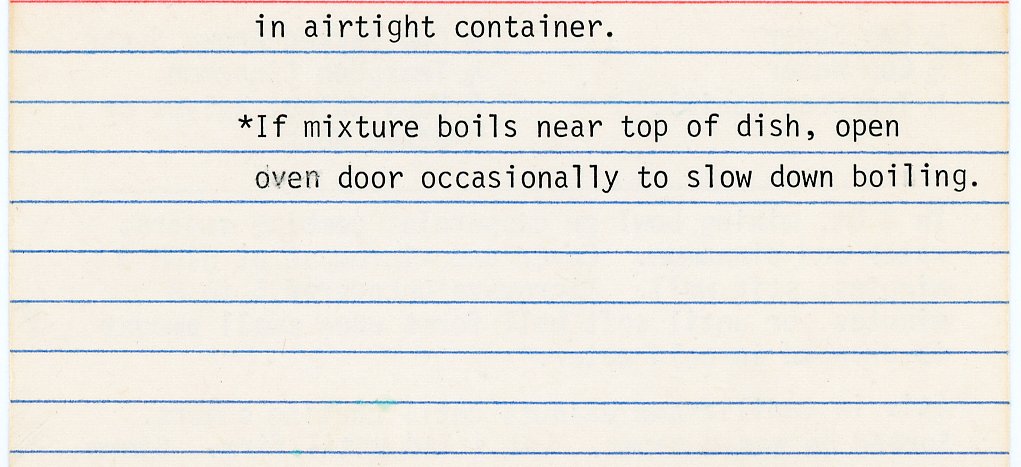 in airtight container.
*If mixture boils near top of dish, open
oven door occasionally to slow down boiling.